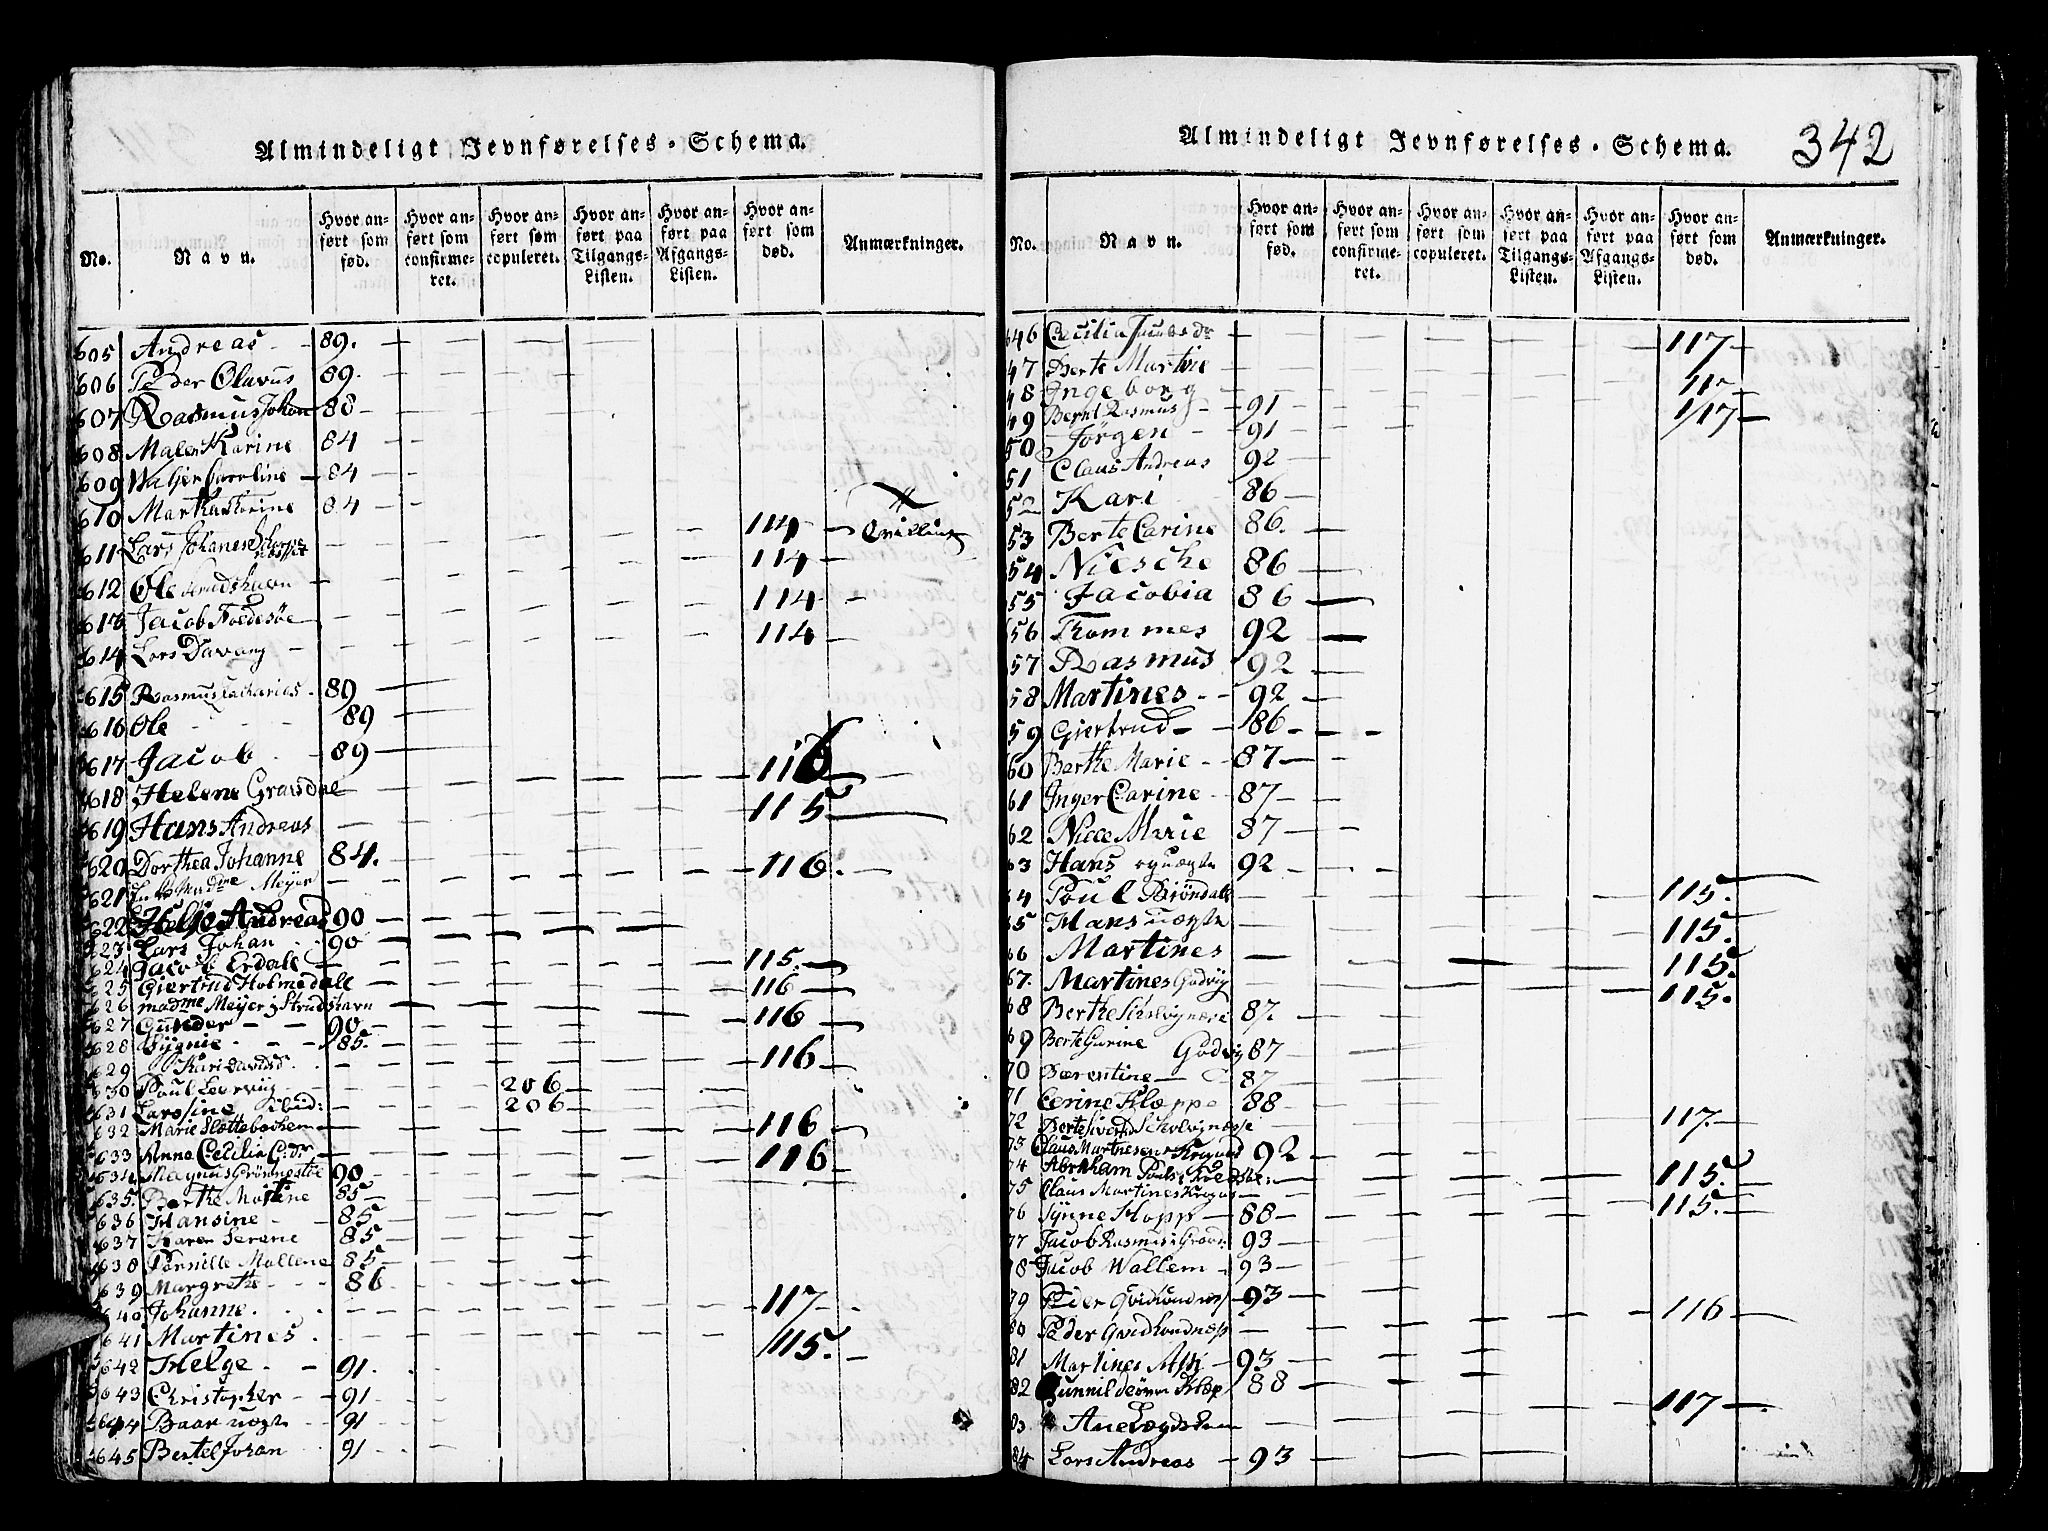 Almindeligt Jevnførelses-Schema.
No.
Navn.
Hvor anført som fød.
Hvor anført som confirmeret.
Hvor anført som copuleret.
Hvor anført paa Tilgangs-Listen.
Hvor anført paa Afgangs-Listen.
Hvor anført som død.
Anmærkninger.
605 Andreas 89.
606 Peder Olavus 89.
607 Rasmus Johan 88
608 Malen Karine 84
609 Caroline 84
610 Martha Karine 84
611 Lars Johanes 114
612 Ole 114
613 Jacob Foedesøe 114
614 Lars Davang 114
615 Rasmus Zacharias 89
616 Ole 89
617 Jacob 89
618 Helene Gransdal 116
619 Hans Andreas 115
620 Dorthea Johanne 84.
621 Meijer 116.
622 Helje Andreas 90
623 Lars Johan 90
624 Jacob Erdall 115.
625 Giertrud Holmedalle 116
626 madme Meijer i Strudshavn 116
627 Gunder 90
628 Signie 85.
629 Kari Davidsd. 116
630 Poul Leerviig 206
631 Larssine ibid: 206
632 Marie Slottebachem 116
633 Anna Cecilia 116
634 Magnus Grøsnestøe 90
635. Berthe Martine 85
636 Hansine 85
637 Karen Serene 85
638 Pernille Mallene 85
639 Margrethe 86
640 Johanne. 117
641 Martines 115.
642 Helge 91.
643 Christopher 91
644 Baar uægte 91
645 Bertel Johan 91
Almindeligt Jevnførelses-Schema.
342
No.
Navn.
Hvor anført som fød.
Hvor anført som confirmeret.
Hvor anført som copuleret.
Hvor anført paa Tilgangs-Listen.
Hvor anført paa Afgangs-Listen.
Hvor anført som død.
Anmærkninger.
646 Cecilia Jacobs Dr 117
47 Berte Martine 117
48 Ingeborg 117
49 Bernt Rasmus 91
50 Jörgen 91
51 Claus Andreas 92
52 Kari 86
53 Berte Carine 86.
54 Niesche 86
55 Jacobia 86
56 Thommes 92
57 Rasmus 92
58 Martines 92
59 Giertrud 86
60 Berthe Marie 87
61 Inger Carine 87
62 Nille Marie 87
63 Hans uægte 92
64 Poul Brøndalt 115.
65 Hans uægte 115.
66 Martines 115.
67. Martines Godvig 115.
68 Berthe 87.
69 Berte Gurine Godvig 87
70 Bærentine 87
71 Cerine Kloppe 88
72 Berte 117.
73 Claus Martinesen 92
74 Abraham 115.
75 Claus Martines 115.
76 Synne Hopp 88
77 Jacob Rasmus 93
78 Jacob Wallem 93
79 Peder 93
80 Peder 116
81 Martines Ask 93
82 Gunnild 88
83 Ane 117
84 Lars Andreas 93